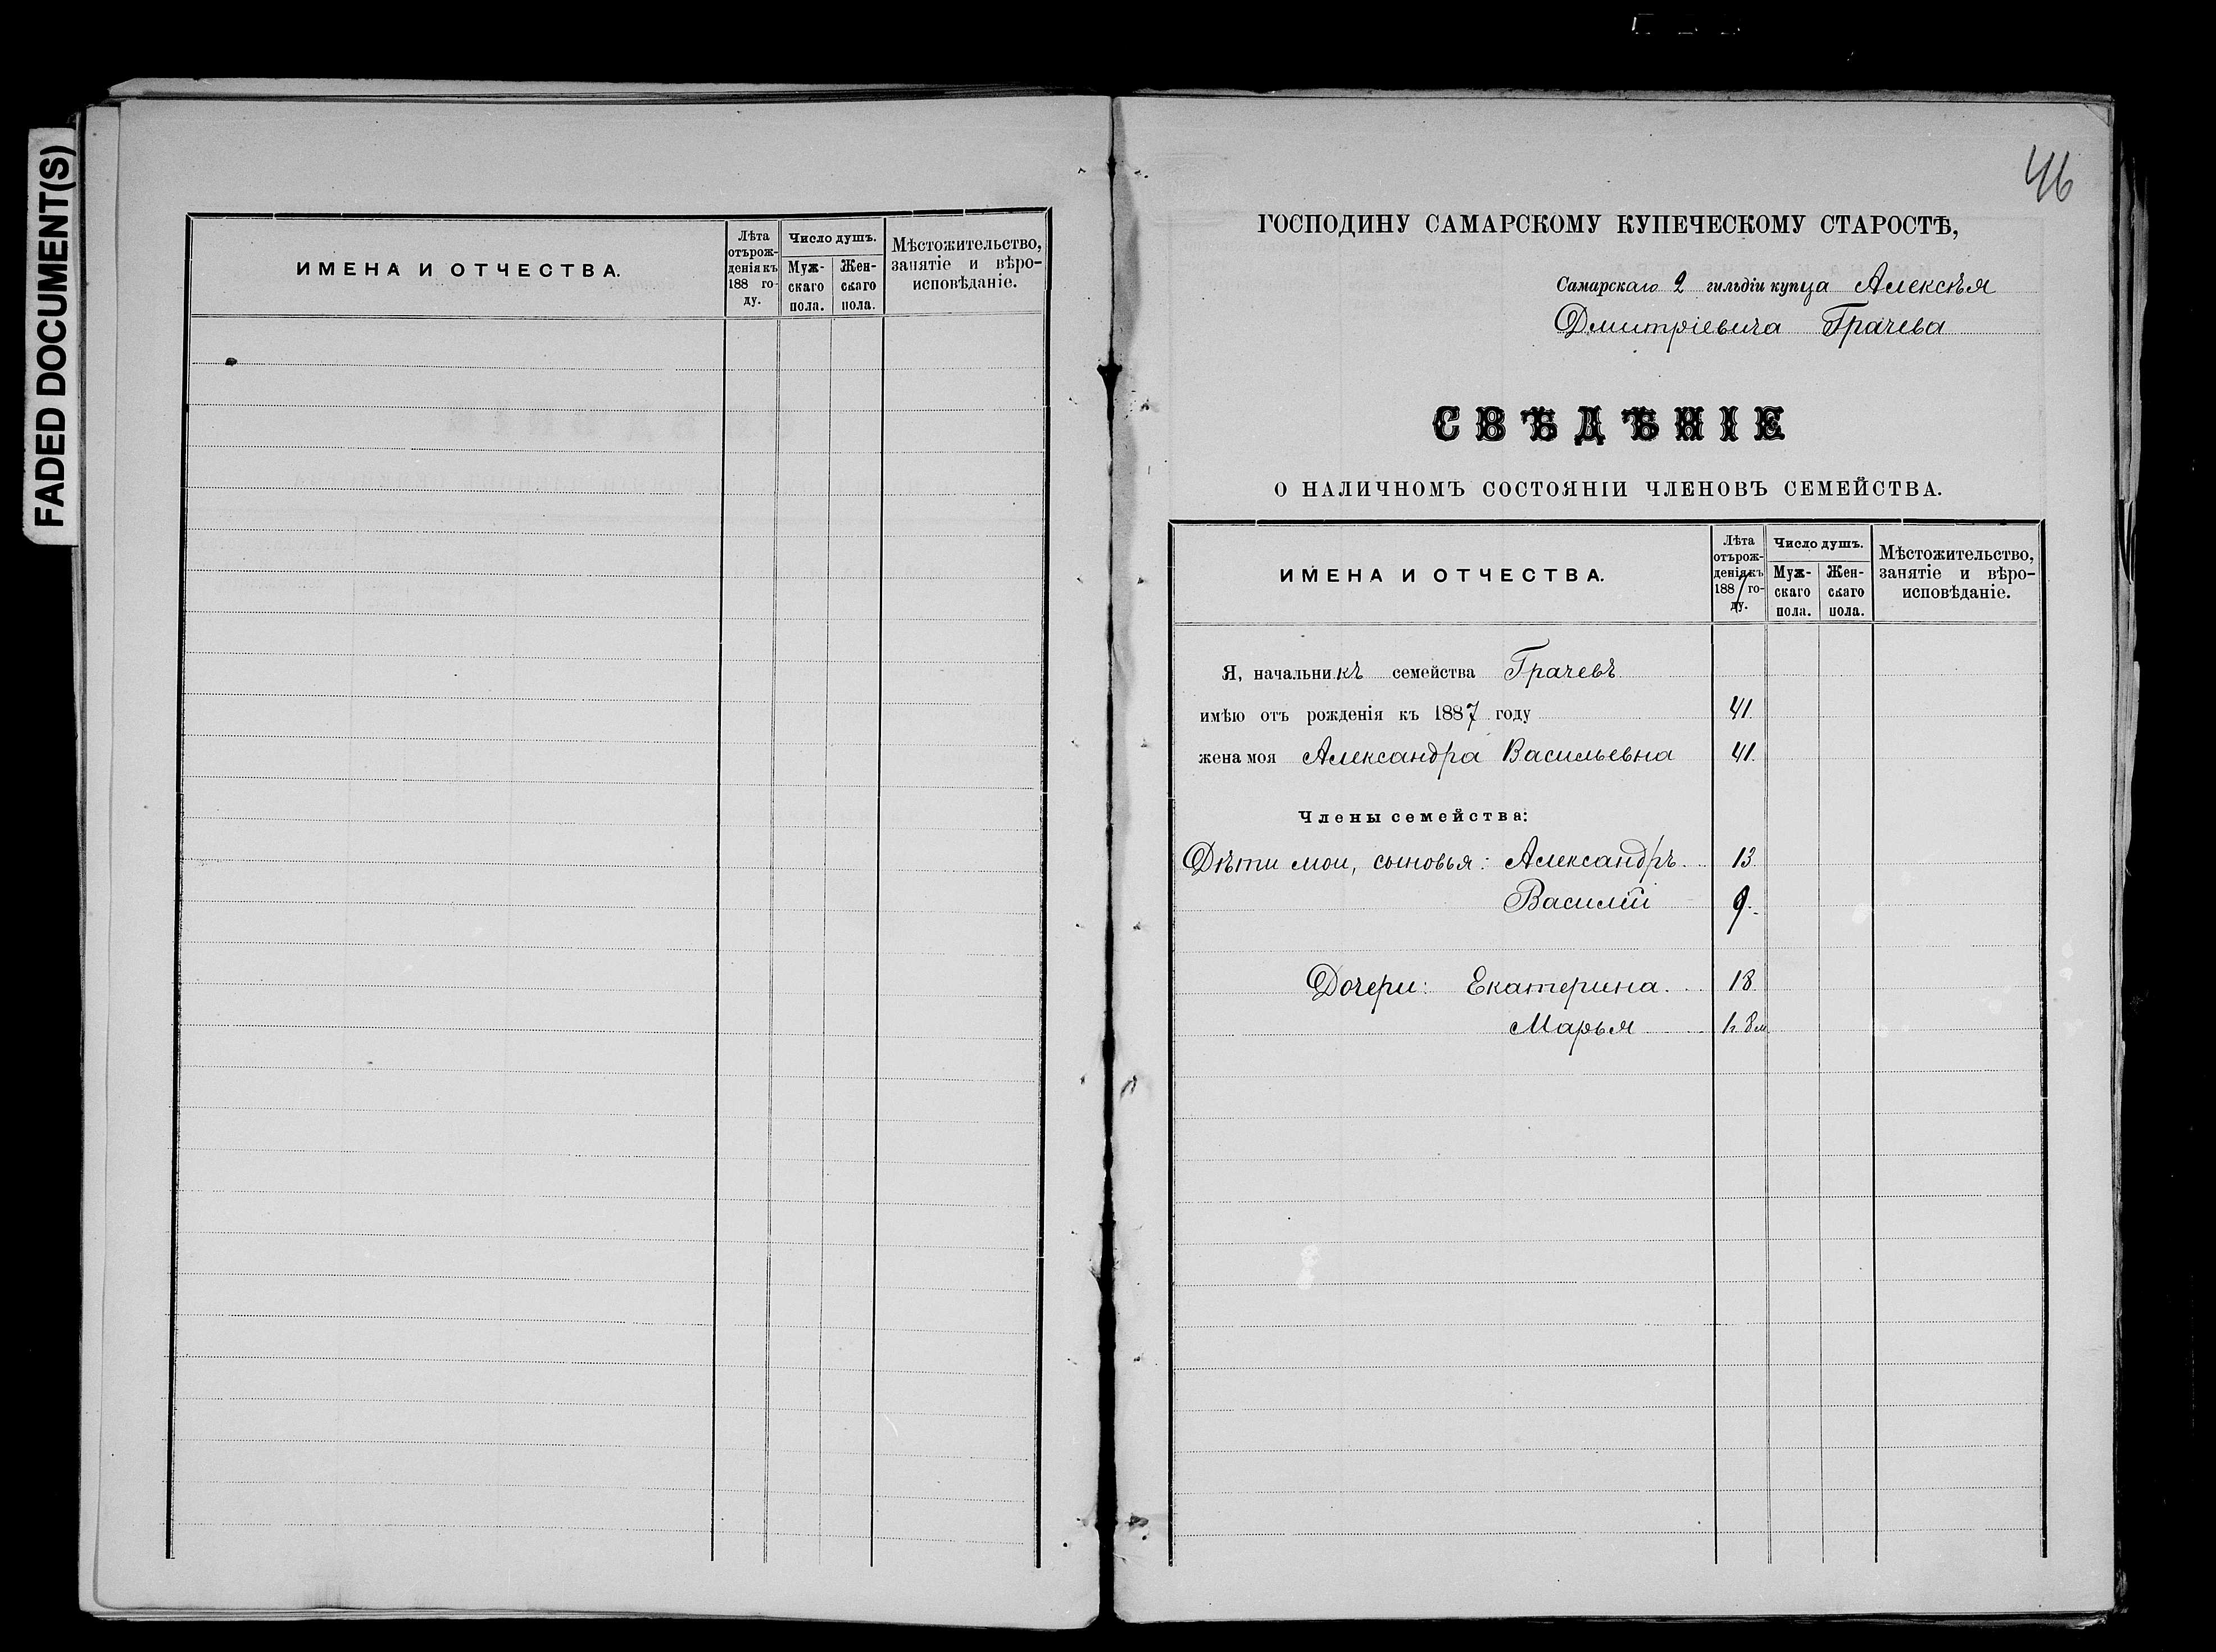 FADED DOCUMENT(S)
ИМЕНА И ОТЧЕСТВА.
Лѣта
отърож-
денія къ
188 го-
ду.
Число душъ.
Муж-
скаго
пола.
Жен-
скаго
пола.
Мѣстожительство,
занятіе и вѣро-
исповѣданіе.
46
ГОСПОДИНУ САМАРСКОМУ КУПЕЧЕСКОМУ СТАРОСТѢ,
Самарскаго 2 гильдіи купца Алексѣя
Дмитріевича Грачева
СВѢДѢНІЕ
О НАЛИЧНОМЪ СОСТОЯНІИ ЧЛЕНОВЪ СЕМЕЙСТВА.
ИМЕНА И ОТЧЕСТВА.
Лѣта
отърож-
денія къ
1887 го-
ду.
Число душъ.
Муж-
скаго
пола.
Жен-
скаго
пола.
Мѣстожительство,
занятіе и вѣро-
исповѣданіе.
Я, начальникъ семейства Грачевъ
имѣю отъ рожденія къ 1887 году 41.
жена моя Александра Васильевна 41.
Члены семейства:
Дѣти мои, сыновья: Александръ. 13.
Василій 9.
Дочери: Екатерина. 18.
Марья 1г. 8м